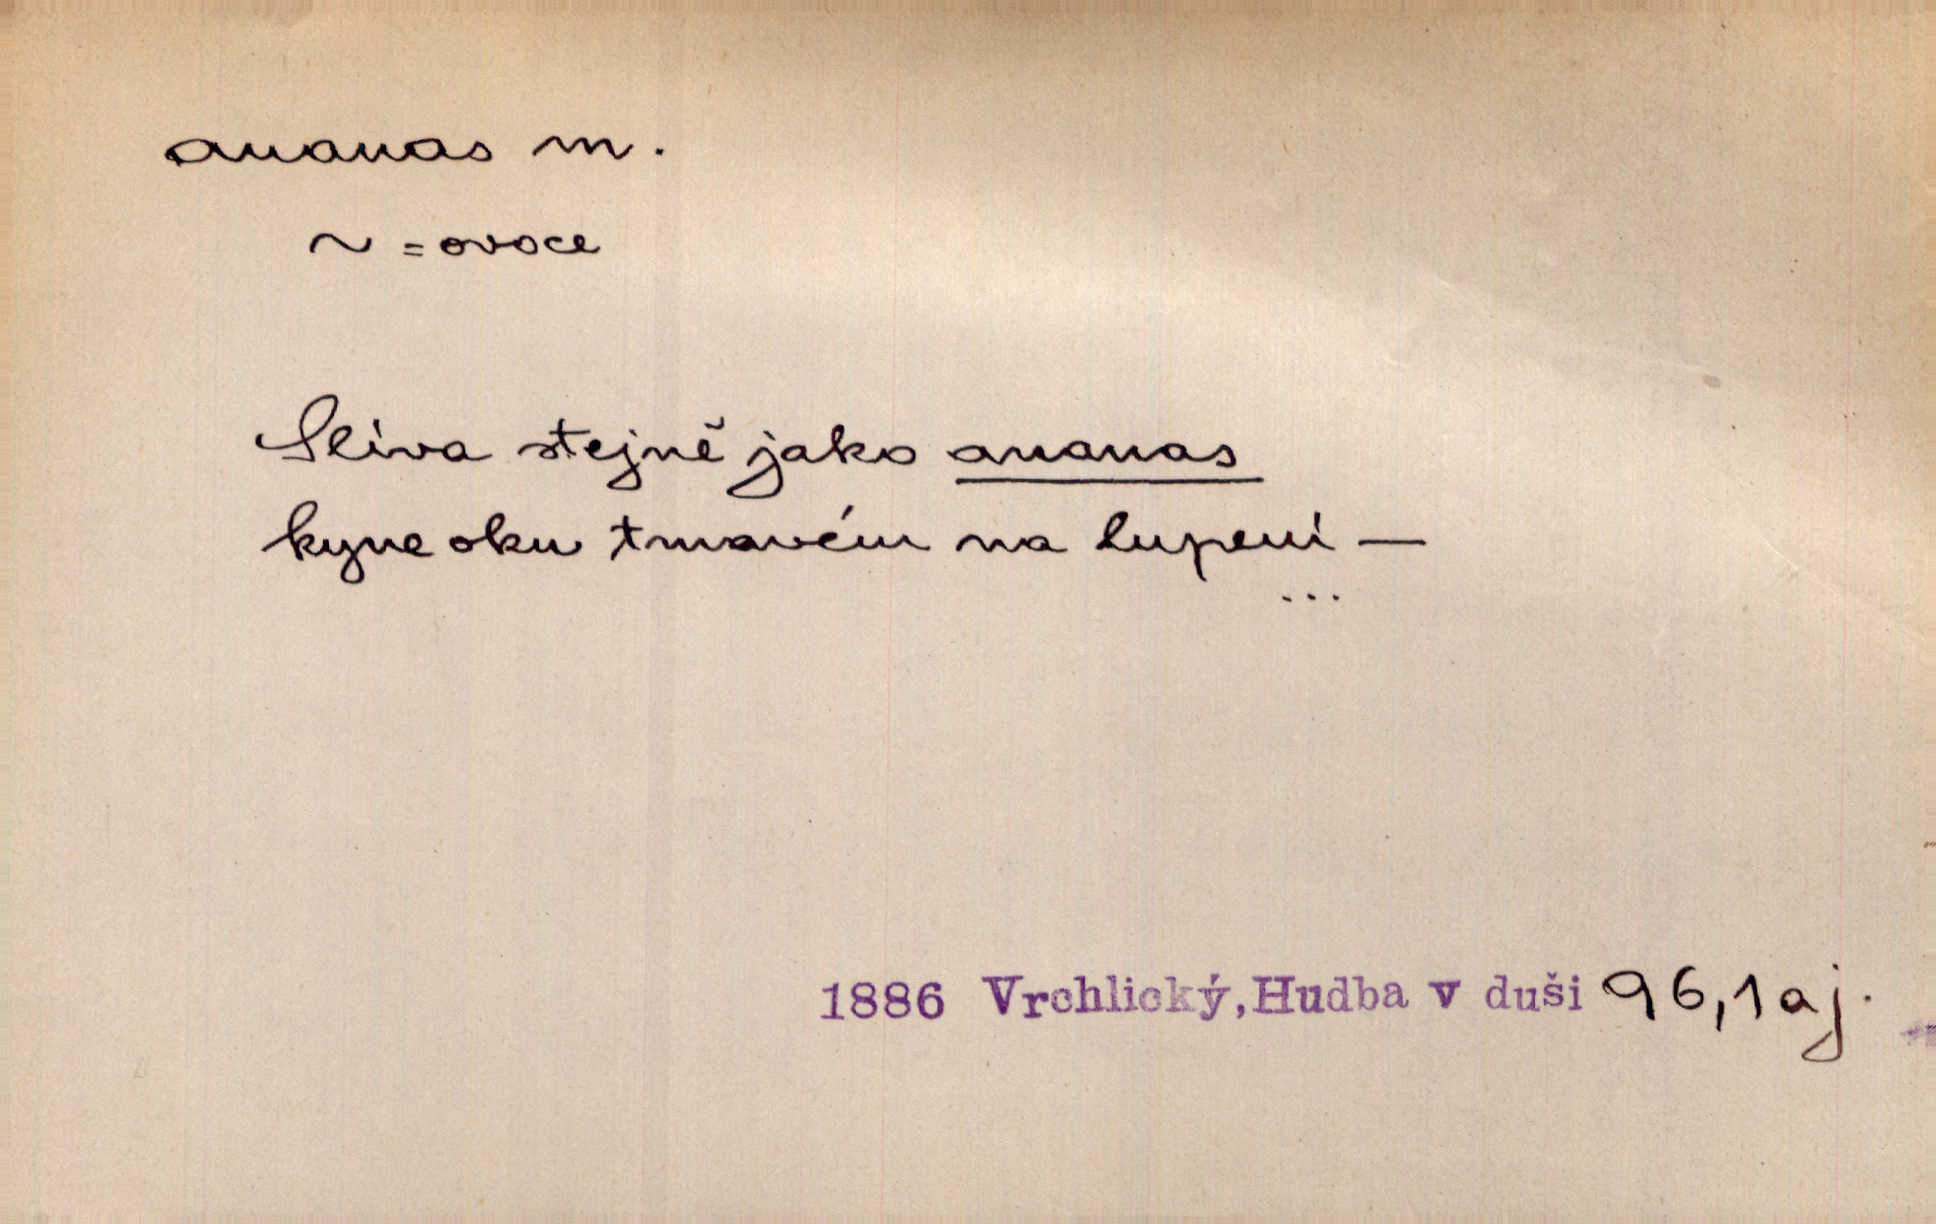 ananas m.
~ = ovoce
Sliva stejně jako ananas
kyne oku tmavém na lupení —
...
1886 Vrchlický, Hudba v duši 96,1 aj.